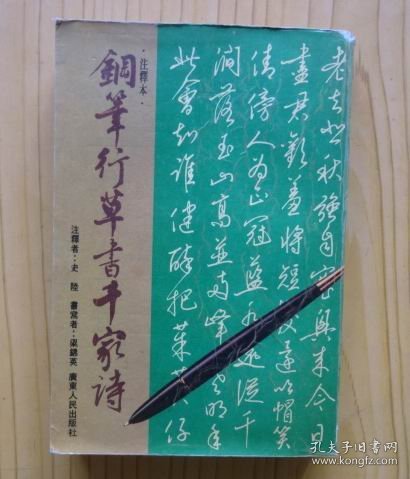 老去悲秋強自寬興來今日
盡君歡羞將短髮還吹帽笑
倩傍人為正冠藍水遠從千
澗落玉山高並兩峰寒明年
此會知誰健醉把茱萸仔
·注釋本·
鋼筆行草書千家詩
注釋者：史 陸 書寫者：梁錦英 廣東人民出版社
孔夫子旧书网
www.kongfz.com